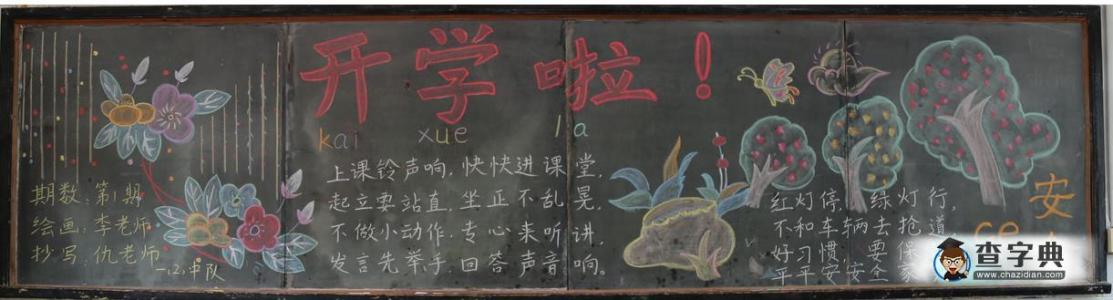 开学啦！
kai xue la
上课铃声响，快快进课堂，
起立要站直，坐正不乱晃，
不做小动作，专心来听讲，
发言先举手，回答声音响。
期数：第1期
绘画：李老师
抄写：仇老师
一、2，中队
红灯停，绿灯行，
不和车辆去抢道，
好习惯，要保
平平安安全家
安
ce
查字典
www.chazidian.com